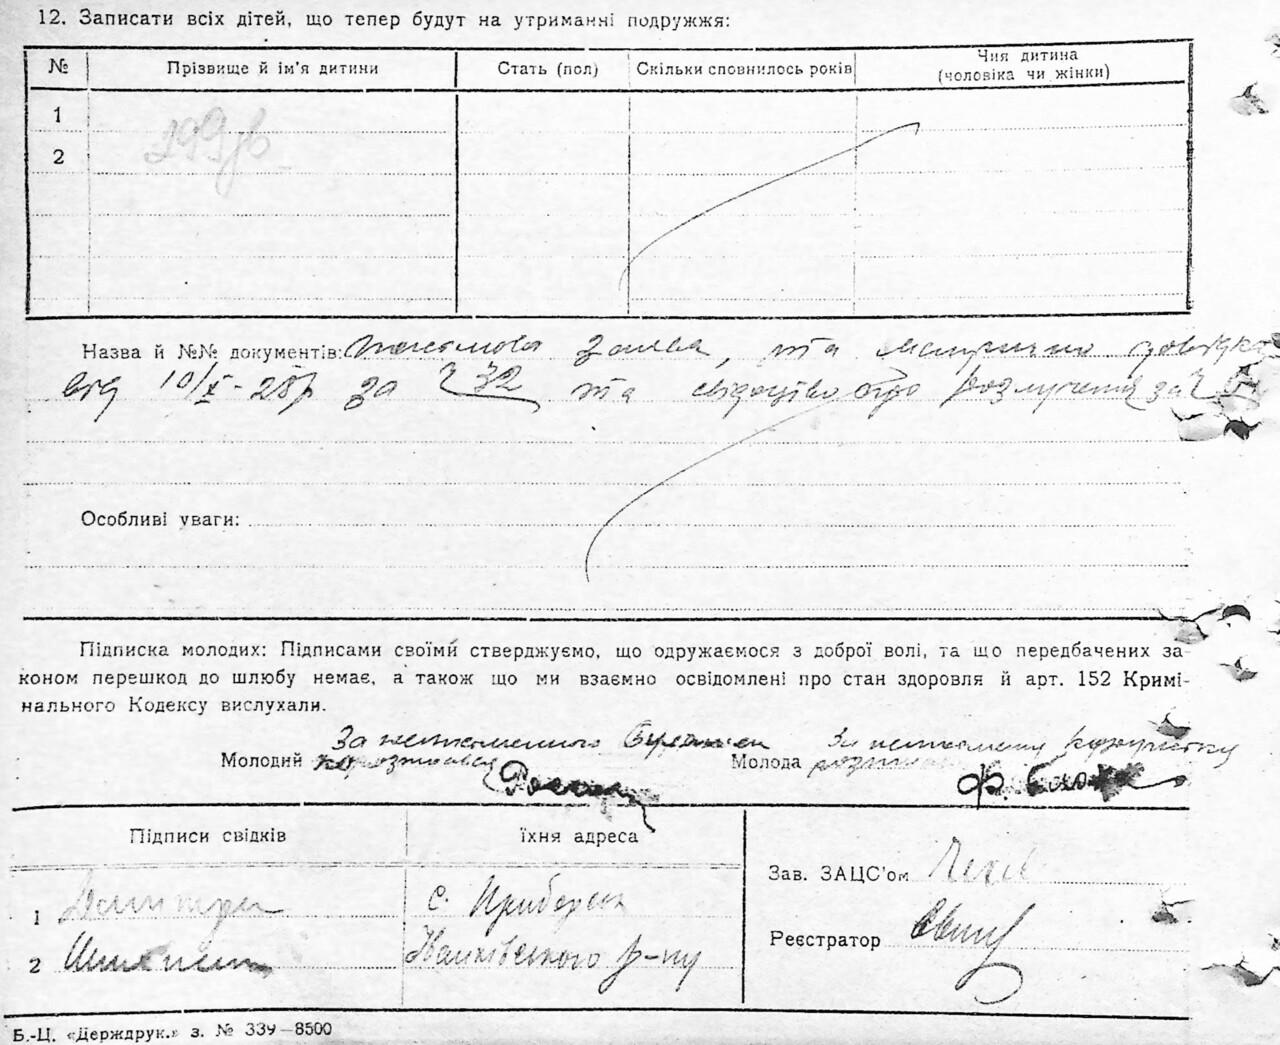 12. Записати всіх дітей, що тепер будут на утриманні подружжя:
№ Прізвище й ім'я дитини Стать (пол) Скільки сповнилось років Чия дитина (чоловіка чи жінки)
1
2
Назва й №№ документів: заява, та довідка
від 10/X-28р за Ч 32 та свідоцтво про розлучення за Ч
Особливі уваги:
Підписка молодих: Підписами своїми стверджуємо, що одружаємося з доброї волі, та що передбачених за-
коном перешкод до шлюбу немає, а також що ми взаємно освідомлені про стан здоровля й арт. 152 Кримі-
нального Кодексу вислухали.
За неписьменного За неписьменну
Молодий розписався Молода
Ф.
Підписи свідків їхня адреса
Зав. ЗАЦС'ом
1 с. Приборськ
Реєстратор
2 Іванківського р-ну
Б.-Ц. «Держдрук.» з. № 339—8500